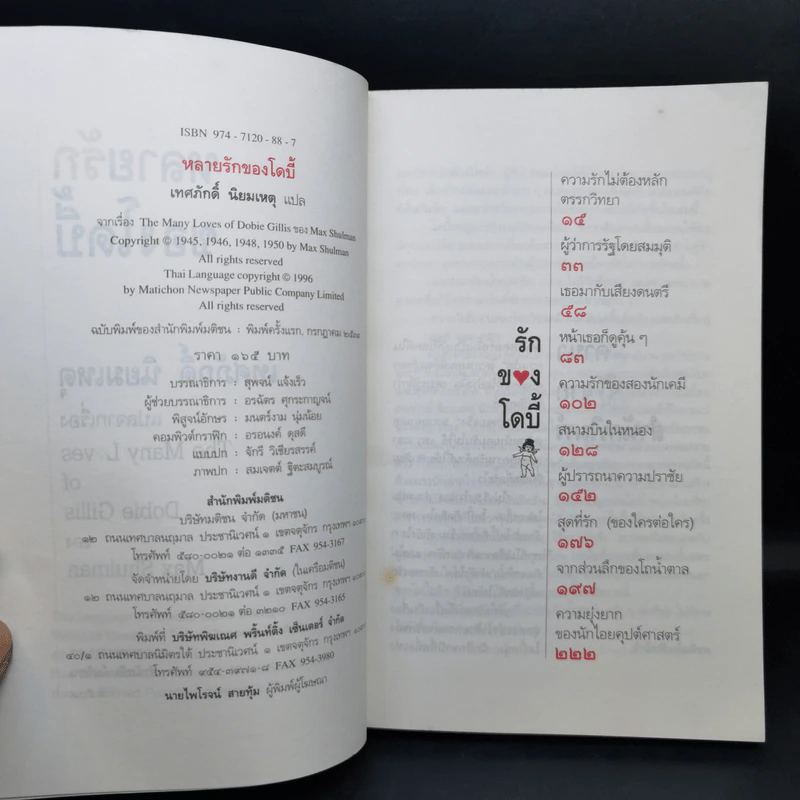 ISBN 974 - 7120 - 88 - 7
หลายรักของโดบี้
เทศภักดิ์ นิยมเหตุ แปล
จากเรื่อง The Many Loves of Dobie Gillis ของ Max Shulman
Copyright © 1945, 1946, 1948, 1950 by Max Shulman
All rights reserved
Thai Language copyright © 1996
by Matichon Newspaper Public Company Limited
All rights reserved
ฉบับพิมพ์ของสำนักพิมพ์มติชน : พิมพ์ครั้งแรก, กรกฎาคม ๒๕๓๙
ราคา ๑๖๕ บาท
บรรณาธิการ : สุพจน์ แจ้งเร็ว
ผู้ช่วยบรรณาธิการ : อรฉัตร ศุกระกาญจน์
พิสูจน์อักษร : มนตร์งาม นุ่มน้อย
คอมพิวต์กราฟิก : อรอนงค์ ดุสดี
แบบปก : จักรี วิเชียรสรรค์
ภาพปก : สมเจตต์ ฐิตะสมบูรณ์
สำนักพิมพ์มติชน
บริษัทมติชน จำกัด (มหาชน)
๑๒ ถนนเทศบาลนฤมาล ประชานิเวศน์ ๑ เขตจตุจักร กรุงเทพฯ
โทรศัพท์ ๕๘๐-๐๐๒๑ ต่อ ๑๓๓๕ FAX 954-3167
จัดจำหน่ายโดย บริษัทงานดี จำกัด (ในเครือมติชน)
๑๒ ถนนเทศบาลนฤมาล ประชานิเวศน์ ๑ เขตจตุจักร กรุงเทพฯ
โทรศัพท์ ๕๘๐-๐๐๒๑ ต่อ ๓๒๑๐ FAX 954-3165
พิมพ์ที่ บริษัทพิฆเณศ พริ้นท์ติ้ง เซ็นเตอร์ จำกัด
๔๐/๑ ถนนเทศบาลนิมิตรใต้ ประชานิเวศน์ ๑ เขตจตุจักร กรุงเทพฯ
โทรศัพท์ ๙๕๔-๓๙๗๑-๘ FAX 954-3980
นายไพโรจน์ สายทุ้ม ผู้พิมพ์ผู้โฆษณา
รัก
ของ
โดบี้
ความรักไม่ต้องหลัก
ตรรกวิทยา
๑๕
ผู้ว่าการรัฐโดยสมมุติ
๓๓
เธอมากับเสียงดนตรี
๕๘
หน้าเธอก็ดูคุ้น ๆ
๘๓
ความรักของสองนักเคมี
๑๐๒
สนามบินในหนอง
๑๒๘
ผู้ปรารถนาความปราชัย
๑๕๒
สุดที่รัก (ของใครต่อใคร)
๑๗๖
จากส่วนลึกของโถน้ำตาล
๑๙๗
ความยุ่งยาก
ของนักไอยคุปต์ศาสตร์
๒๒๒